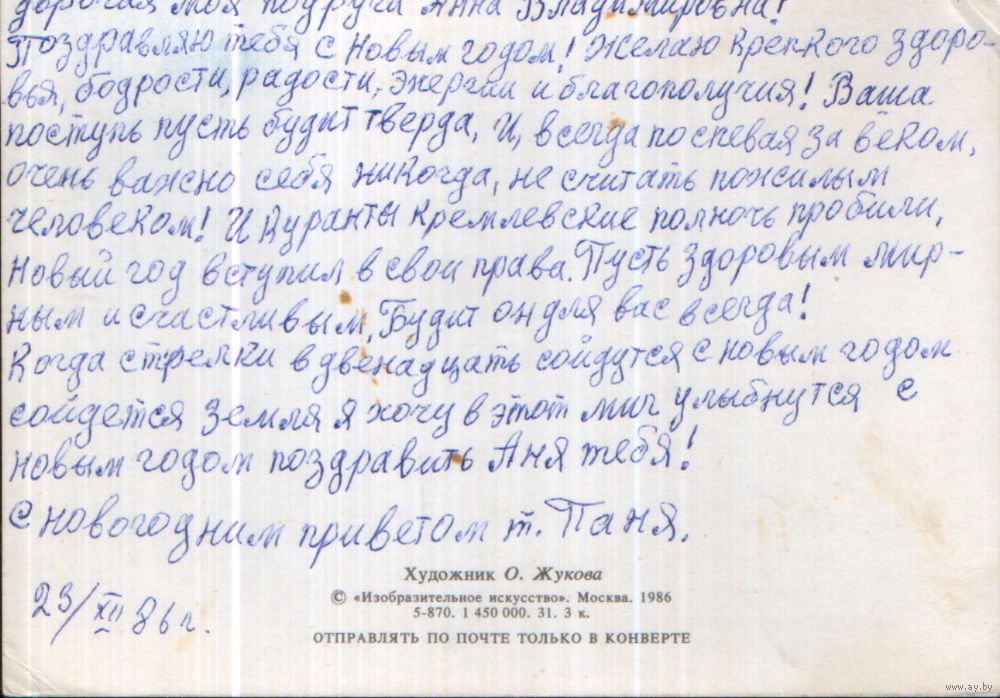 дорогая моя подруга Анна Владимировна!
Поздравляю тебя с Новым годом! Желаю крепкого здоро-
вья, бодрости, радости, энергии и благополучия! Ваша
поступь пусть будит тверда, И, всегда поспевая за веком,
очень важно себя никогда, не считать пожилым
человеком! И Куранты кремлевские полночь пробили,
Новый год вступил в свои права. Пусть здоровым мир-
ным и счастливым, Будит он для вас всегда!
Когда стрелки в двенадцать сойдутся с новым годом
сойдется Земля я хочу в этот миг улыбнутся с
новым годом поздравить Аня тебя!
С новогодним приветом т. Паня.
23/XII 86 г.
Художник О. Жукова
© «Изобразительное искусство». Москва. 1986
5-870. 1 450 000. 31. 3 к.
ОТПРАВЛЯТЬ ПО ПОЧТЕ ТОЛЬКО В КОНВЕРТЕ
www.ay.by